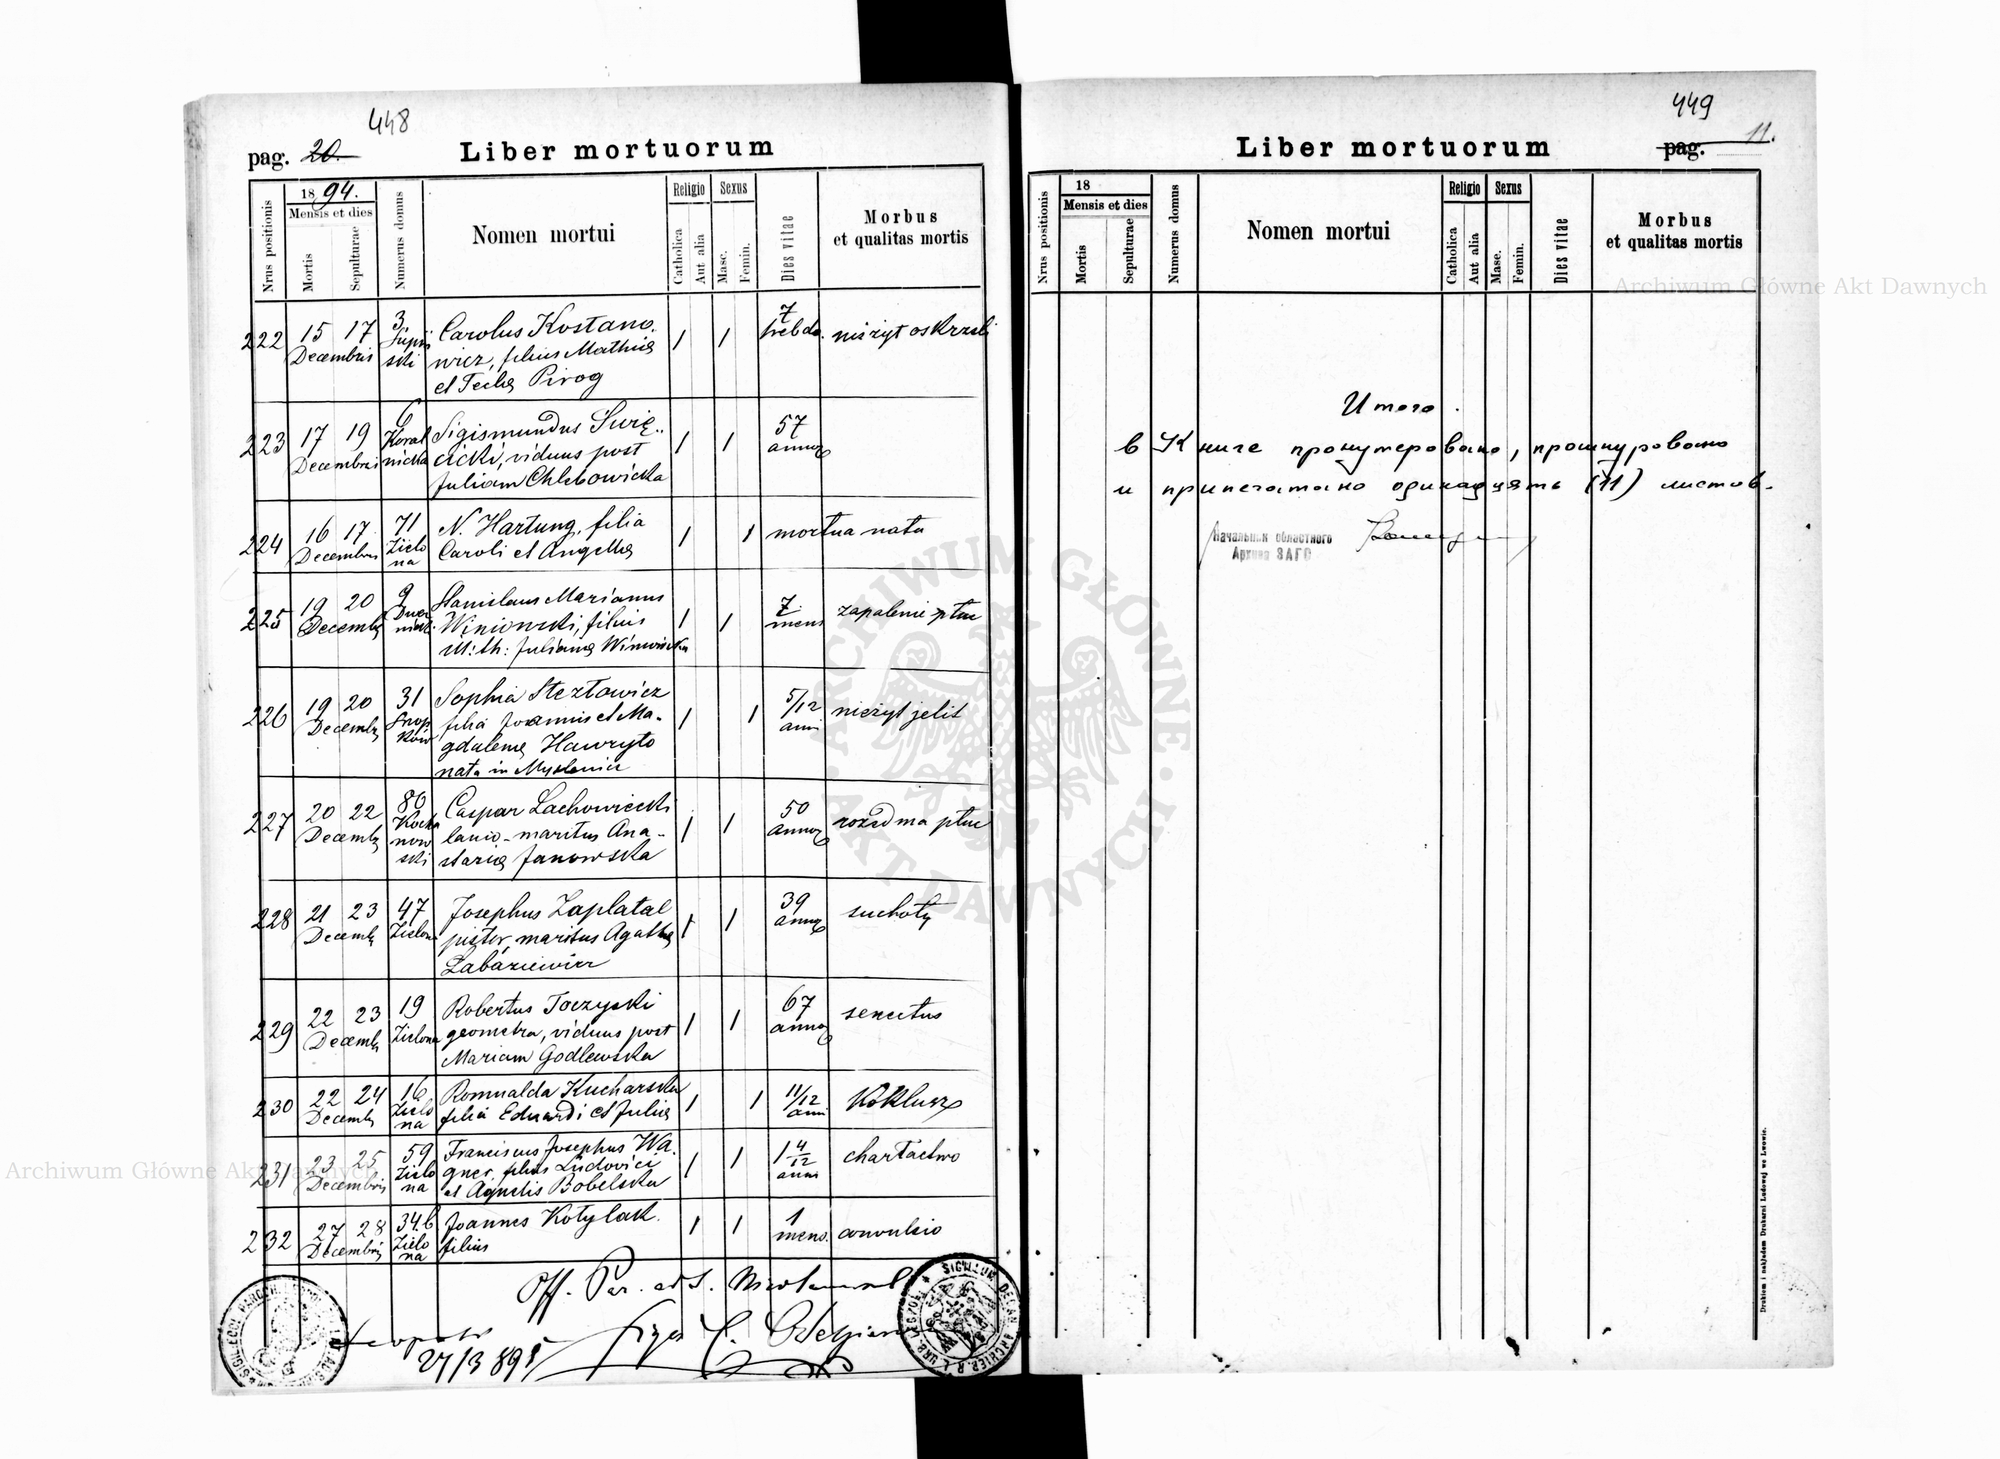 448
pag. 20.
Liber mortuorum
Nrus positionis
1894.
Mensis et dies
Mortis
Sepulturae
Numerus domus
Nomen mortui
Religio
Catholica
Aut alia
Sexus
Masc.
Femin.
Dies vitae
Morbus
et qualitas mortis
222 15 17 Decembris 3 Carolus Kostano- 1 1 7 hebdo. nieżyt oskrzeli
ski wicz, filius Mathiæ
et Teclæ Pirog
223 17 19 Decembris 6 Sigismundus Świę- 1 1 57 annor
cicki, viduus post
Juliam Chlebowicka
224 16 17 Decembris 71 Zielo na N. Hartung, filia 1 1 mortua nata
Caroli et Angelæ
225 19 20 Decemb 9 Stanislaus Marianus 1 1 7 mens zapalenie płuc
Winiowski, filius
Julianæ Winiowska
226 19 20 Decemb 31 Snop ków Sophia 1 1 5/12 anni nieżyt jelit
filia Joannis et Ma-
gdalenæ Hawryło
nata in
227 20 22 Decemb 86 Kocha now ski Caspar Lachowiecki 1 1 50 annor rozedma płuc
lanio - maritus Ana-
stasiæ Janowska
228 21 23 Decemb 47 Zielona Josephus Zaplatal 1 1 39 annor suchoty
pistor, maritus Agathæ
Łabaziewicz
229 22 23 Decemb 19 Zielona Robertus Toczyski 1 1 67 annor senectus
geometra, viduus post
Mariam Godlewska
230 22 24 Decemb 16 Zielo na Romualda Kucharska 1 1 11/12 anni Koklusz
filia Eduardi et Juliæ
231 23 25 Decembris 59 Zielo na Franciscus Josephus Wa- 1 1 1 4/12 anni charłactwo
gner, filius Ludovici
et Agnetis Bobelska
232 27 28 Decembris 34b Zielo na Joannes Kotylak 1 1 1 mens. convulsio
filius
Off. Par. ad S. Nicolaum
Leopoli
27/3 895
449
pag. 11.
Liber mortuorum
Nrus positionis
18
Mensis et dies
Mortis
Sepulturae
Numerus domus
Nomen mortui
Religio
Catholica
Aut alia
Sexus
Masc.
Femin.
Dies vitae
Morbus
et qualitas mortis
Итого.
в Книге пронумеровано, прошнуровано
и припечатано одинадцать (11) листов.
Начальник областного
Архива ЗАГС
Drukiem i nakładem Drukarni Ludowej we Lwowie.
Archiwum Główne Akt Dawnych
Archiwum Główne Akt Dawnych
ARCHIWUM GŁÓWNE · AKT DAWNYCH ·